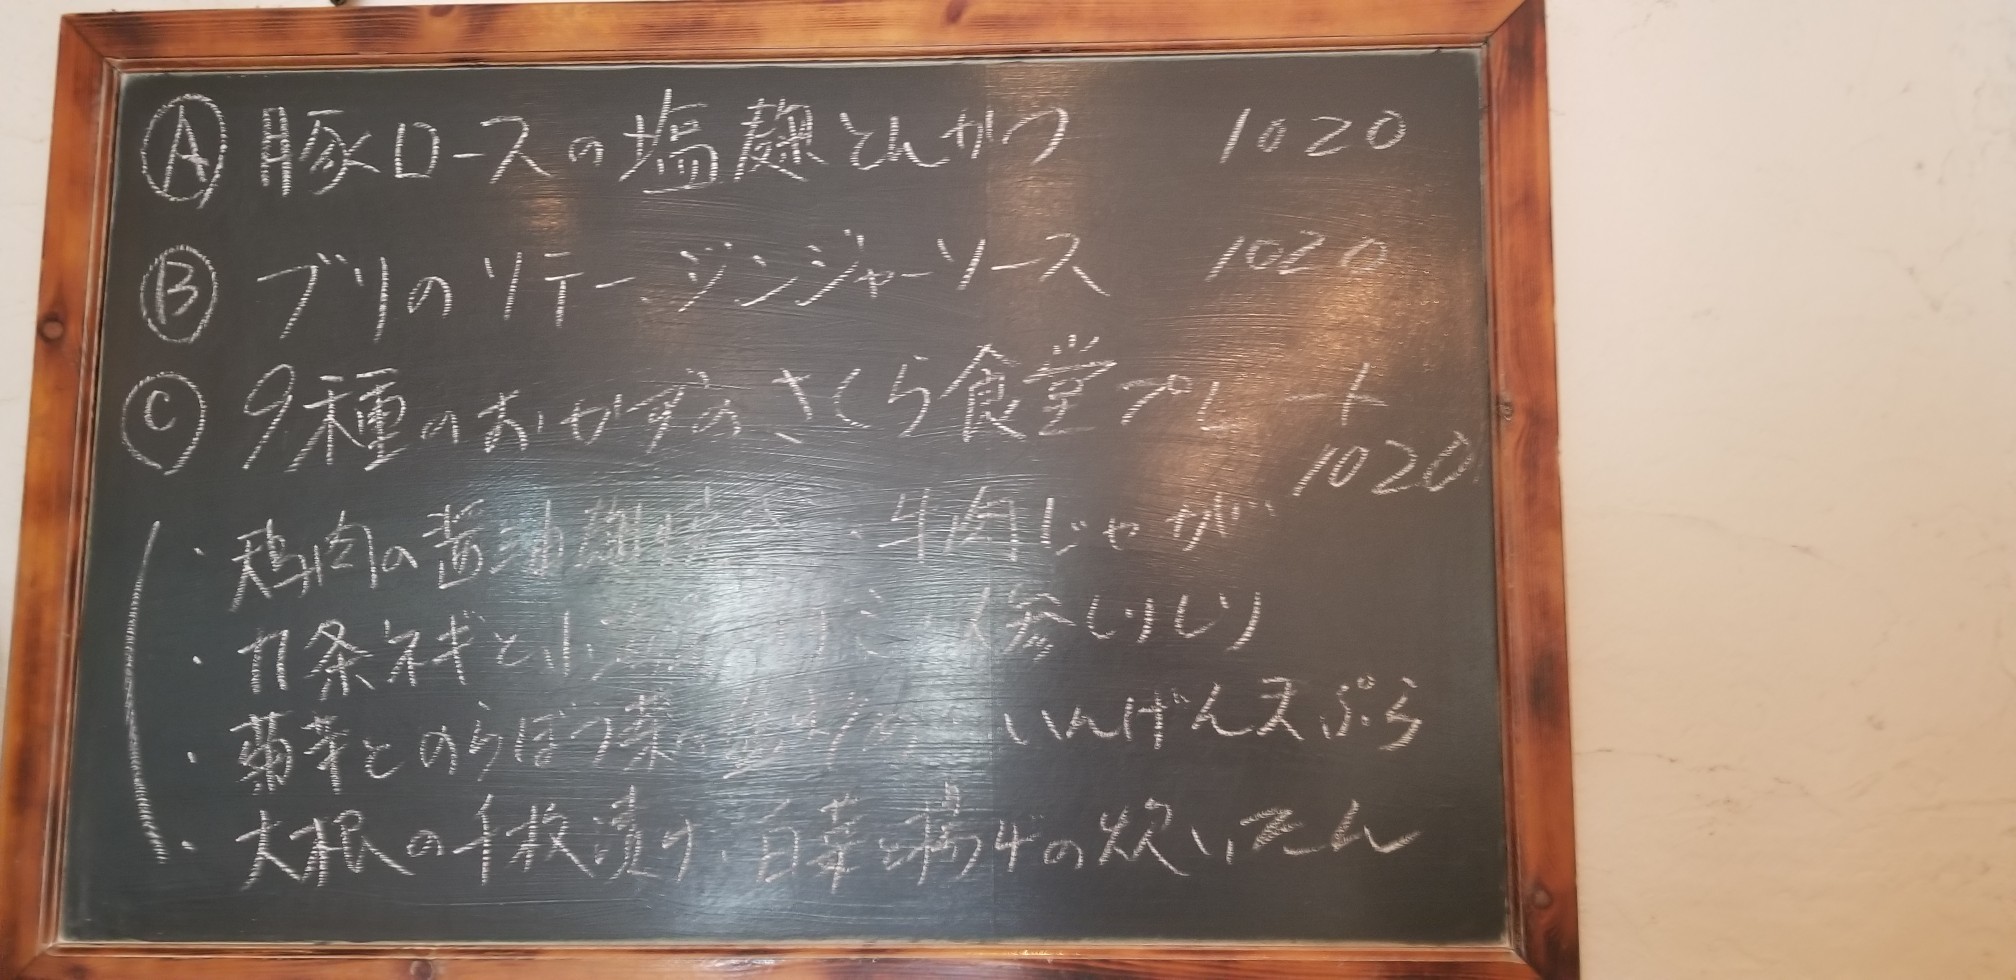 Ⓐ 豚ロースの塩麹とんかつ 1020
Ⓑ ブリのソテー ジンジャーソース 1020
Ⓒ 9種のおかずのさくら食堂プレート
1020
・鶏肉の醤油麹焼き ・牛肉じゃが
・九条ネギと 人参しりしり
・菊芋とのらぼう菜の いんげん天ぷら
・大根の千枚漬け・白菜と揚げの炊いたん